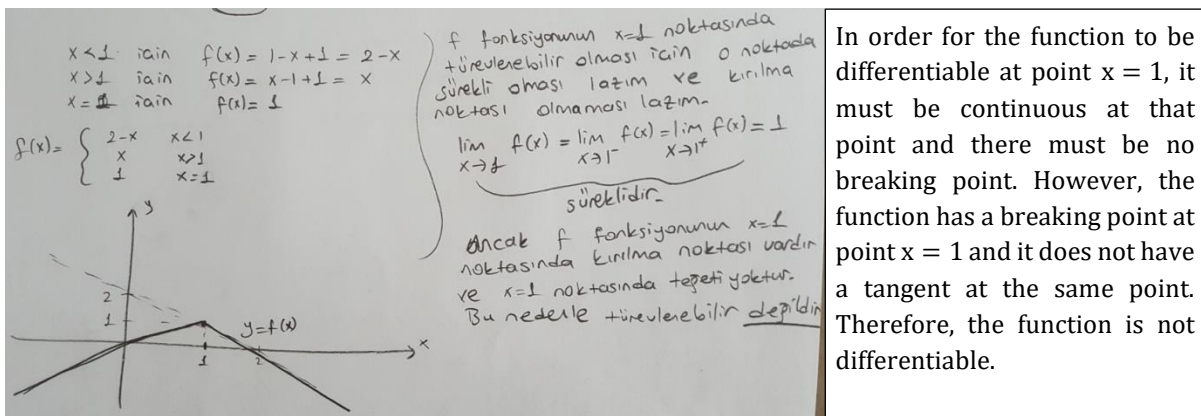 x<1 için f(x) = 1-x+1 = 2-x
x>1 için f(x) = x-1+1 = x
x=1 için f(x)= 1
f(x)= { 2-x x<1
x x>1
1 x=1
y
2
1
y=f(x)
x
1
2
f fonksiyonunun x=1 noktasında
türevlenebilir olması için o noktada
sürekli olması lazım ve kırılma
noktası olmaması lazım.
lim f(x) = lim f(x) = lim f(x) = 1
x→1 x→1⁻ x→1⁺
süreklidir.
Ancak f fonksiyonunun x=1
noktasında kırılma noktası vardır
ve x=1 noktasında teğeti yoktur.
Bu nedenle türevlenebilir değildir
In order for the function to be
differentiable at point x = 1, it
must be continuous at that
point and there must be no
breaking point. However, the
function has a breaking point at
point x = 1 and it does not have
a tangent at the same point.
Therefore, the function is not
differentiable.